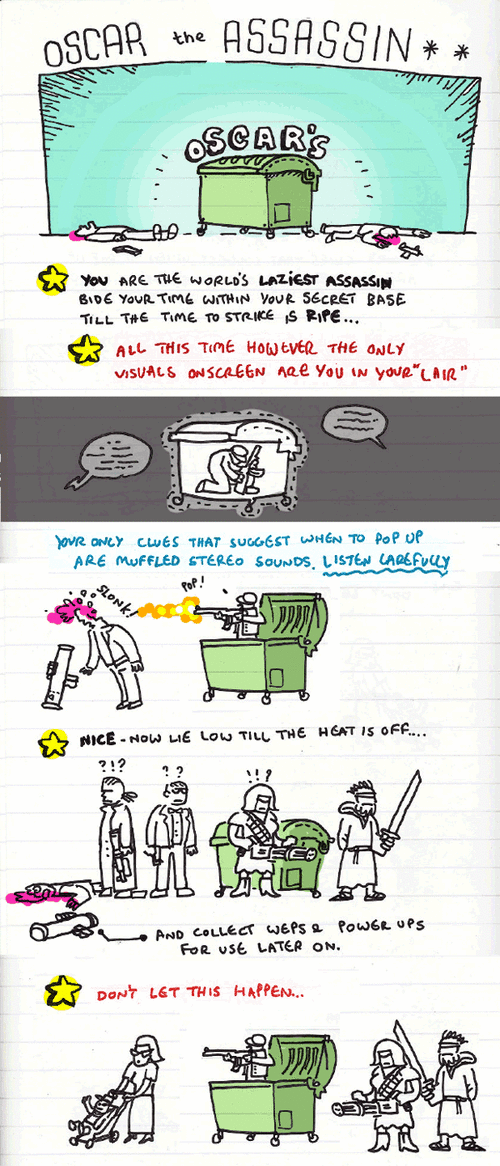 OSCAR the ASSASSIN * *
OSCAR'S
YOU ARE THE WORLD'S LAZIEST ASSASSIN
BIDE YOUR TIME WITHIN YOUR SECRET BASE
TILL THE TIME TO STRIKE IS RIPE...
ALL THIS TIME HOWEVER THE ONLY
VISUALS ONSCREEN ARE YOU IN YOUR "LAIR"
YOUR ONLY CLUES THAT SUGGEST WHEN TO POP UP
ARE MUFFLED STEREO SOUNDS. LISTEN CAREFULLY
SLONK!
POP!
NICE - NOW LIE LOW TILL THE HEAT IS OFF....
?!?
??
!!?
AND COLLECT WEPS & POWER UPS
FOR USE LATER ON.
DON'T LET THIS HAPPEN...